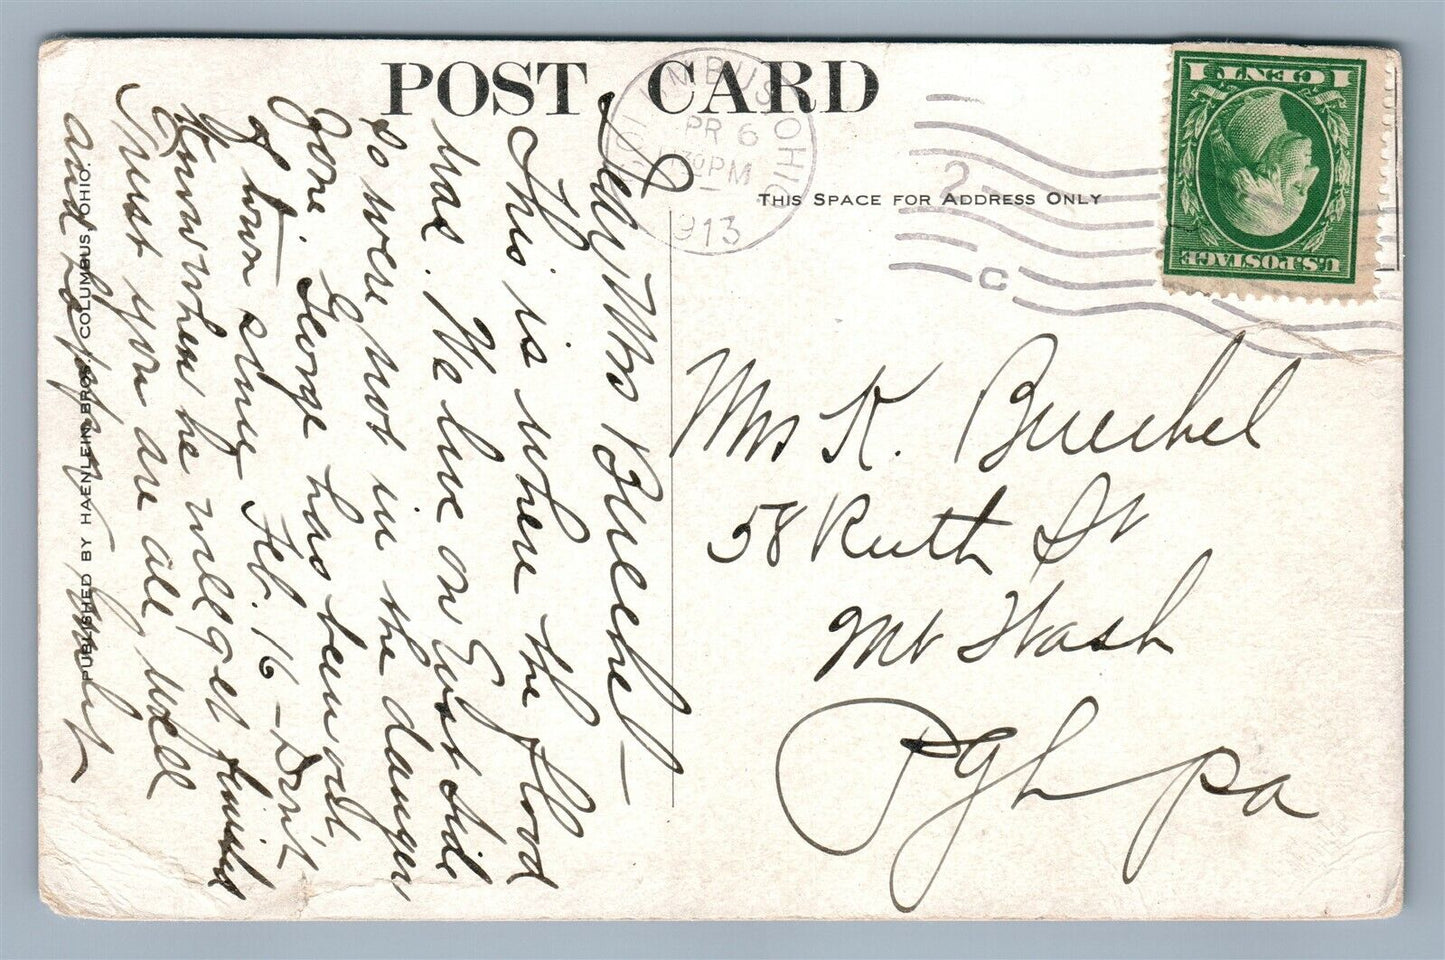 POST CARD
COLUMBUS OHIO
PR 6
1130PM
1913
2
C
1 CENT 1
U.S. POSTAGE
THIS SPACE FOR ADDRESS ONLY
Mrs K. Buechel
58 Ruth St
Mt Wash
Pgh pa
Mrs Buechel —
This is where the flood
was. We live on East Side
so were not in the danger
zone. George has been out
of town since Feb. 16 — Don't
know when he will get finished
Trust you are all well
and happy
PUBLISHED BY HAENLEIN BROS., COLUMBUS, OHIO.